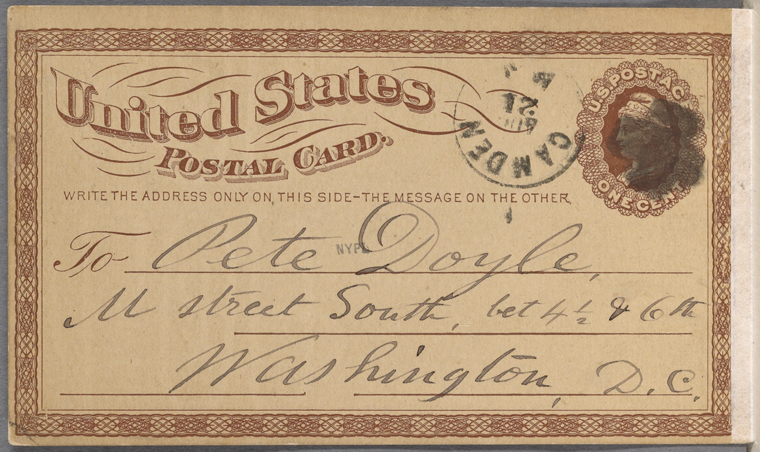 United States
Postal Card.
WRITE THE ADDRESS ONLY ON THIS SIDE-THE MESSAGE ON THE OTHER
CAMDEN
21
U.S. POSTAGE
ONE CENT
To Pete Doyle,
NYPL
M street South, bet 4½ & 6th
Washington, D.C.